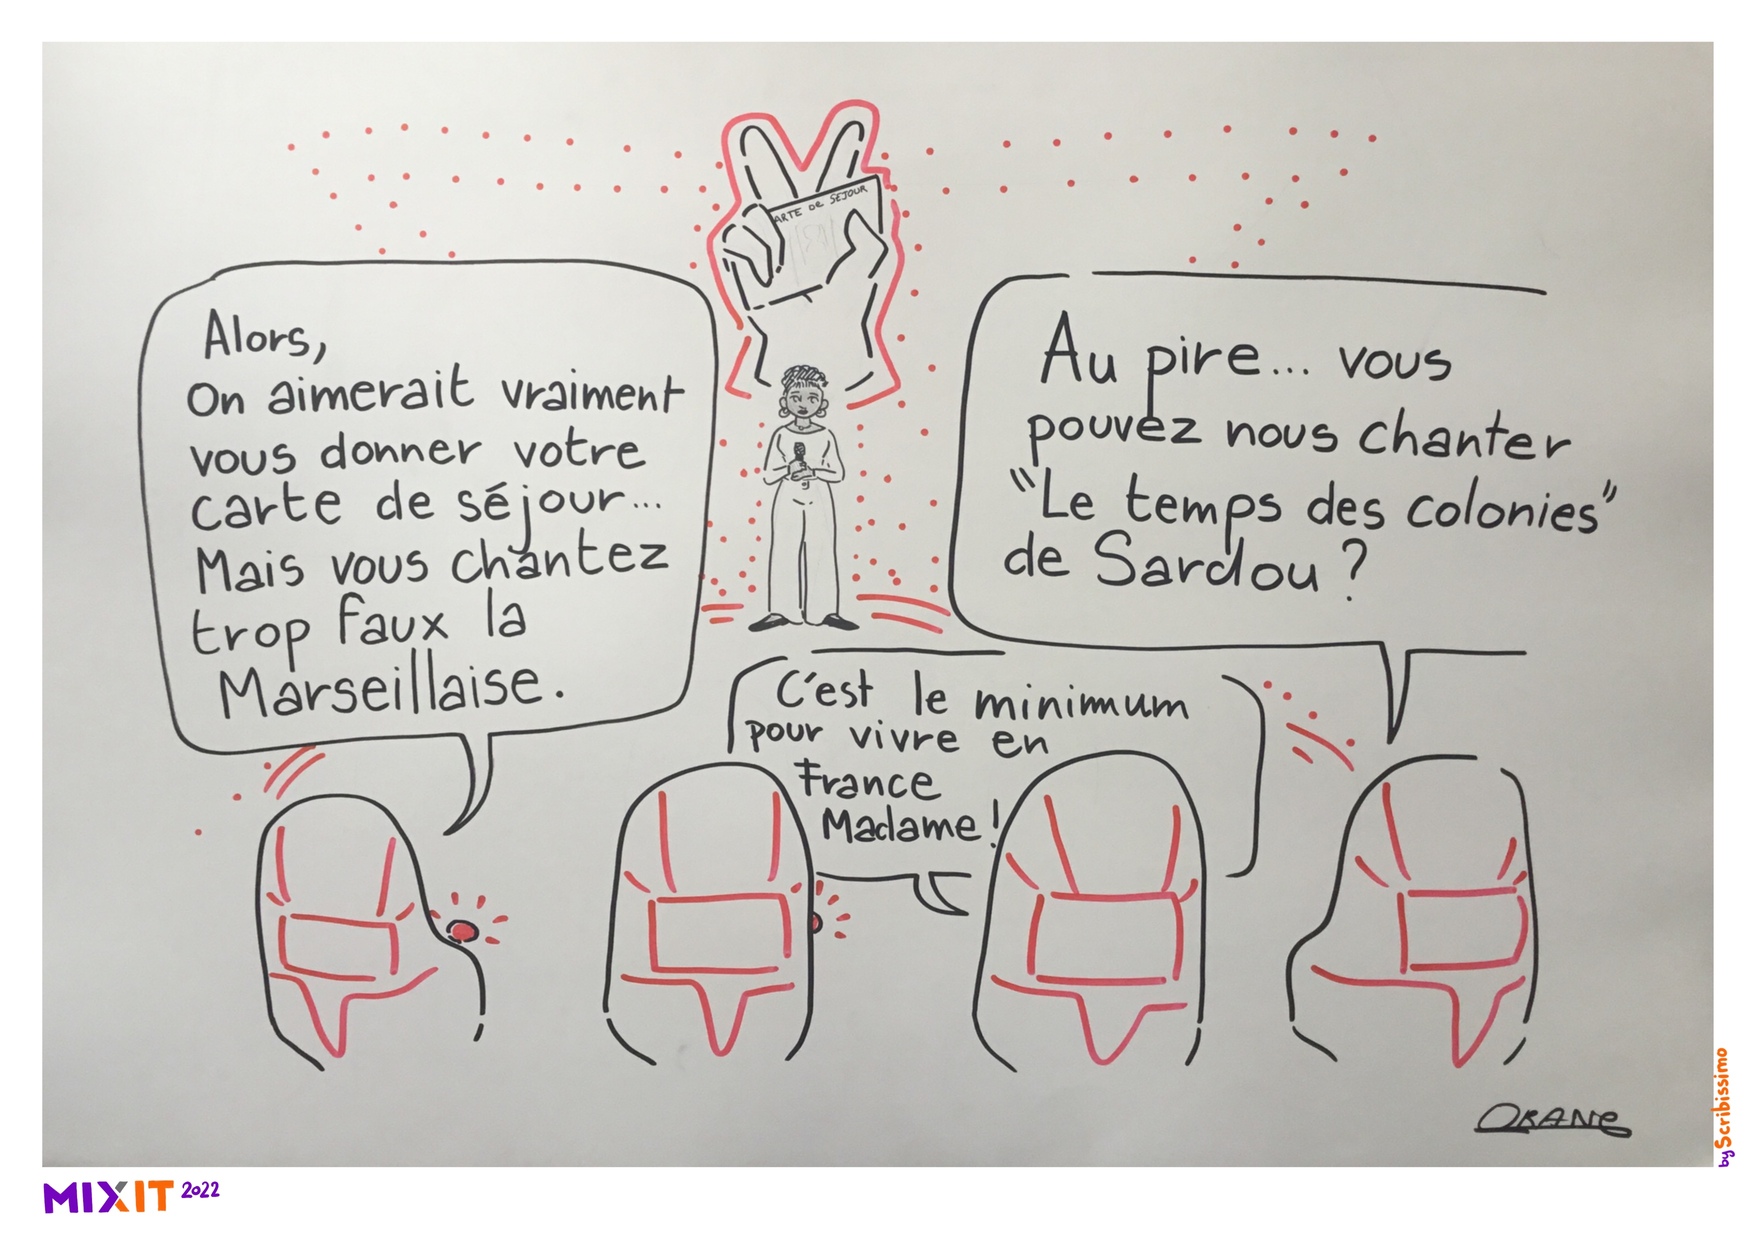 ARTE DE SEJOUR
Alors,
On aimerait vraiment
vous donner votre
carte de séjour...
Mais vous chantez
trop faux la
Marseillaise.
Au pire... vous
pouvez nous chanter
"Le temps des colonies"
de Sardou ?
C'est le minimum
pour vivre en
France
Madame !
ORANE
by Scribissimo
MIXIT 2022